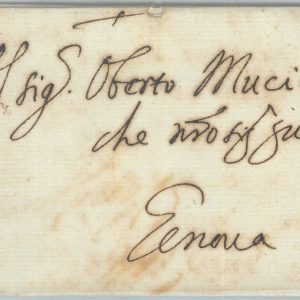 sig.r Oberto Muci
che nr̃o sig.r
Genova